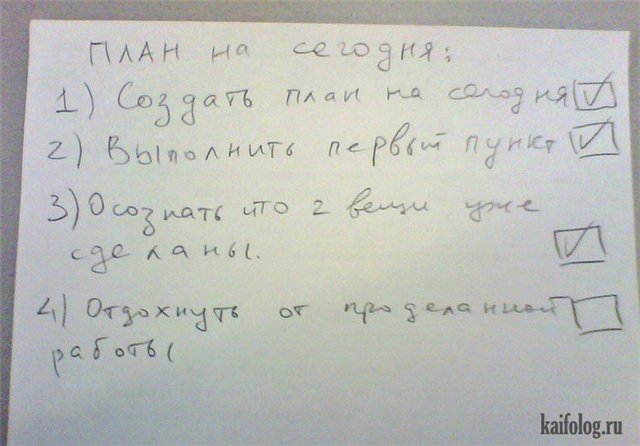 ПЛАН на сегодня:
1) Создать план на сегодня
2) Выполнить первый пункт
3) Осознать что 2 вещи уже
сделаны.
4) Отдохнуть от проделанной
работы
kaifolog.ru